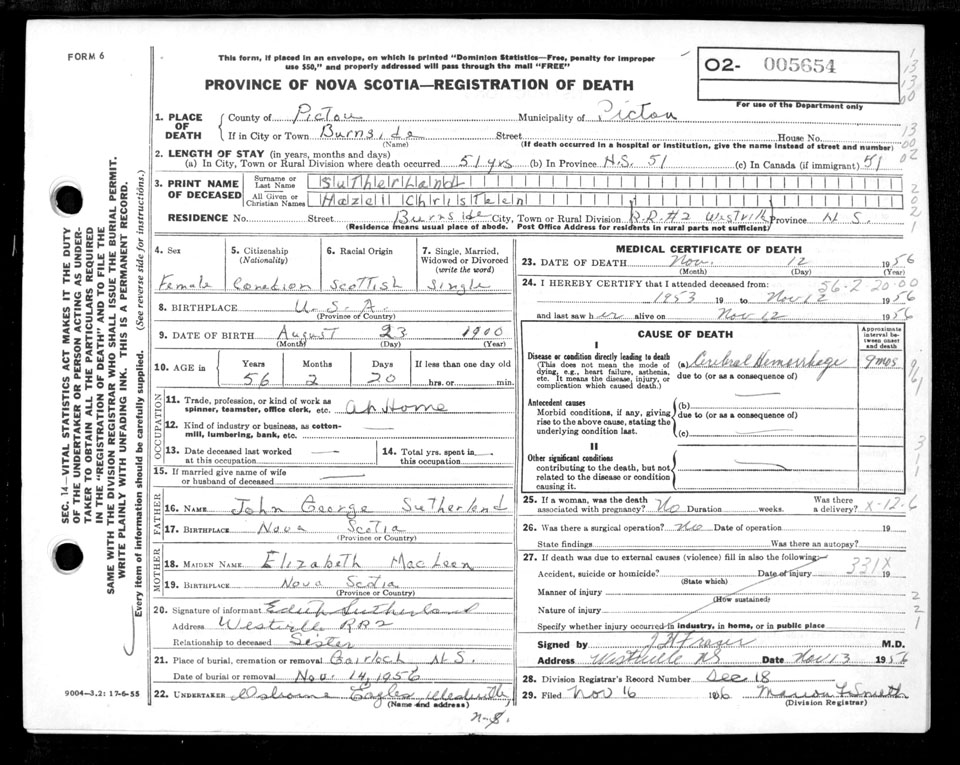 FORM 6
This form, if placed in an envelope, on which is printed "Dominion Statistics—Free, penalty for improper
use $50," and properly addressed will pass through the mail "FREE"
O2- 005654
For use of the Department only
PROVINCE OF NOVA SCOTIA—REGISTRATION OF DEATH
1. PLACE OF DEATH
County of Pictou Municipality of Pictou
If in City or Town Burnside Street House No.
(Name) (If death occurred in a hospital or institution, give the name instead of street and number)
2. LENGTH OF STAY (in years, months and days)
(a) In City, Town or Rural Division where death occurred 51 yrs (b) In Province N.S. 51 (c) In Canada (if immigrant) 51
3. PRINT NAME OF DECEASED
Surname or Last Name Sutherland
All Given or Christian Names Hazell Christen
RESIDENCE No. Street Burnside City, Town or Rural Division R.R.#2 Westville Province N S.
(Residence means usual place of abode. Post Office Address for residents in rural parts not sufficient)
4. Sex
Female
5. Citizenship
(Nationality)
Canadian
6. Racial Origin
Scottish
7. Single, Married,
Widowed or Divorced
(write the word)
Single
8. BIRTHPLACE U.S.A.
(Province or Country)
9. DATE OF BIRTH August 23 1900
(Month) (Day) (Year)
10. AGE in
Years Months Days If less than one day old
56 2 20 hrs. or min.
OCCUPATION
11. Trade, profession, or kind of work as
spinner, teamster, office clerk, etc. at Home
12. Kind of industry or business, as cotton-
mill, lumbering, bank, etc. —
13. Date deceased last worked
at this occupation —
14. Total yrs. spent in
this occupation —
15. If married give name of wife
or husband of deceased —
FATHER
16. NAME John George Sutherland
17. BIRTHPLACE Nova Scotia
(Province or Country)
MOTHER
18. MAIDEN NAME Elizabeth MacLeen
19. BIRTHPLACE Nova Scotia
(Province or Country)
20. Signature of informant Edith Sutherland
Address Westville RR2
Relationship to deceased Sister
21. Place of burial, cremation or removal Gairloch N.S.
Date of burial or removal Nov. 14, 1956
22. UNDERTAKER Osborne Eagles Westville
(Name and address)
N-S.
MEDICAL CERTIFICATE OF DEATH
23. DATE OF DEATH Nov. 12 1956
(Month) (Day) (Year)
24. I HEREBY CERTIFY that I attended deceased from:
56-2-20-00
1953 19 to Nov 12 1956
and last saw her alive on Nov 12 1956
CAUSE OF DEATH
Approximate
interval be-
tween onset
and death
I
Disease or condition directly leading to death
(This does not mean the mode of
dying, e.g., heart failure, asthenia,
etc. It means the disease, injury, or
complication which caused death.)
(a) Cerebral Hemorrhage 9 mos
due to (or as a consequence of)
Antecedent causes
Morbid conditions, if any, giving
rise to the above cause, stating the
underlying condition last.
(b)
due to (or as a consequence of)
(c)
II
Other significant conditions
contributing to the death, but not
related to the disease or condition
causing it.
25. If a woman, was the death
associated with pregnancy? No Duration weeks. Was there
a delivery? X-12-6
26. Was there a surgical operation? No Date of operation 19
State findings Was there an autopsy?
27. If death was due to external causes (violence) fill in also the following:
Accident, suicide or homicide? Date of injury 331X 19
(State which)
Manner of injury
(How sustained)
Nature of injury
Specify whether injury occurred in industry, in home, or in public place
Signed by J H Fraser M.D.
Address Westville NS Date Nov 13 1956
28. Division Registrar's Record Number Dec 18
29. Filed Nov 16 1956 Marion F Smith
(Division Registrar)
SEC. 14—VITAL STATISTICS ACT MAKES IT THE DUTY
OF THE UNDERTAKER OR PERSON ACTING AS UNDER-
TAKER TO OBTAIN ALL THE PARTICULARS REQUIRED
IN THE "REGISTRATION OF DEATH" AND TO FILE THE
SAME WITH THE DIVISION REGISTRAR WHO SHALL ISSUE THE BURIAL PERMIT.
WRITE PLAINLY WITH UNFADING INK. THIS IS A PERMANENT RECORD.
Every item of information should be carefully supplied. (See reverse side for instructions.)
9004—3.2: 17-6-55